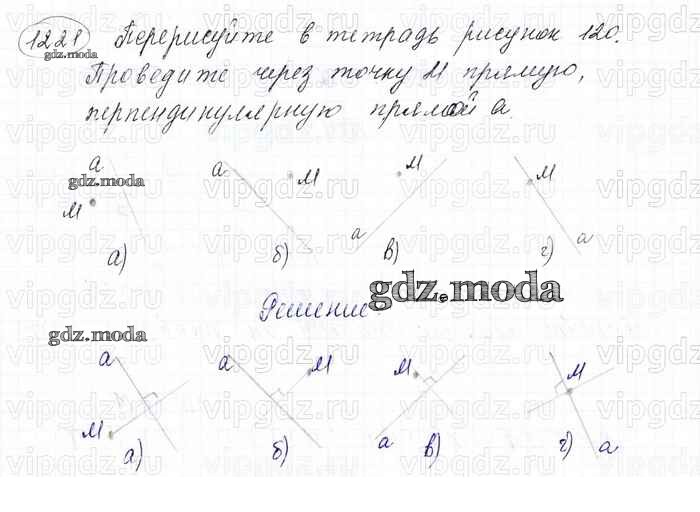 1221 Перерисуйте в тетрадь рисунок 120.
gdz.moda
Проведите через точку М прямую,
перпендикулярную прямой а.
а а М М М
gdz.moda
М
а а
а) б) в) г)
gdz.moda
Решение
gdz.moda
а а М М М
М а а
а) б) в) г)
vipgdz.ru